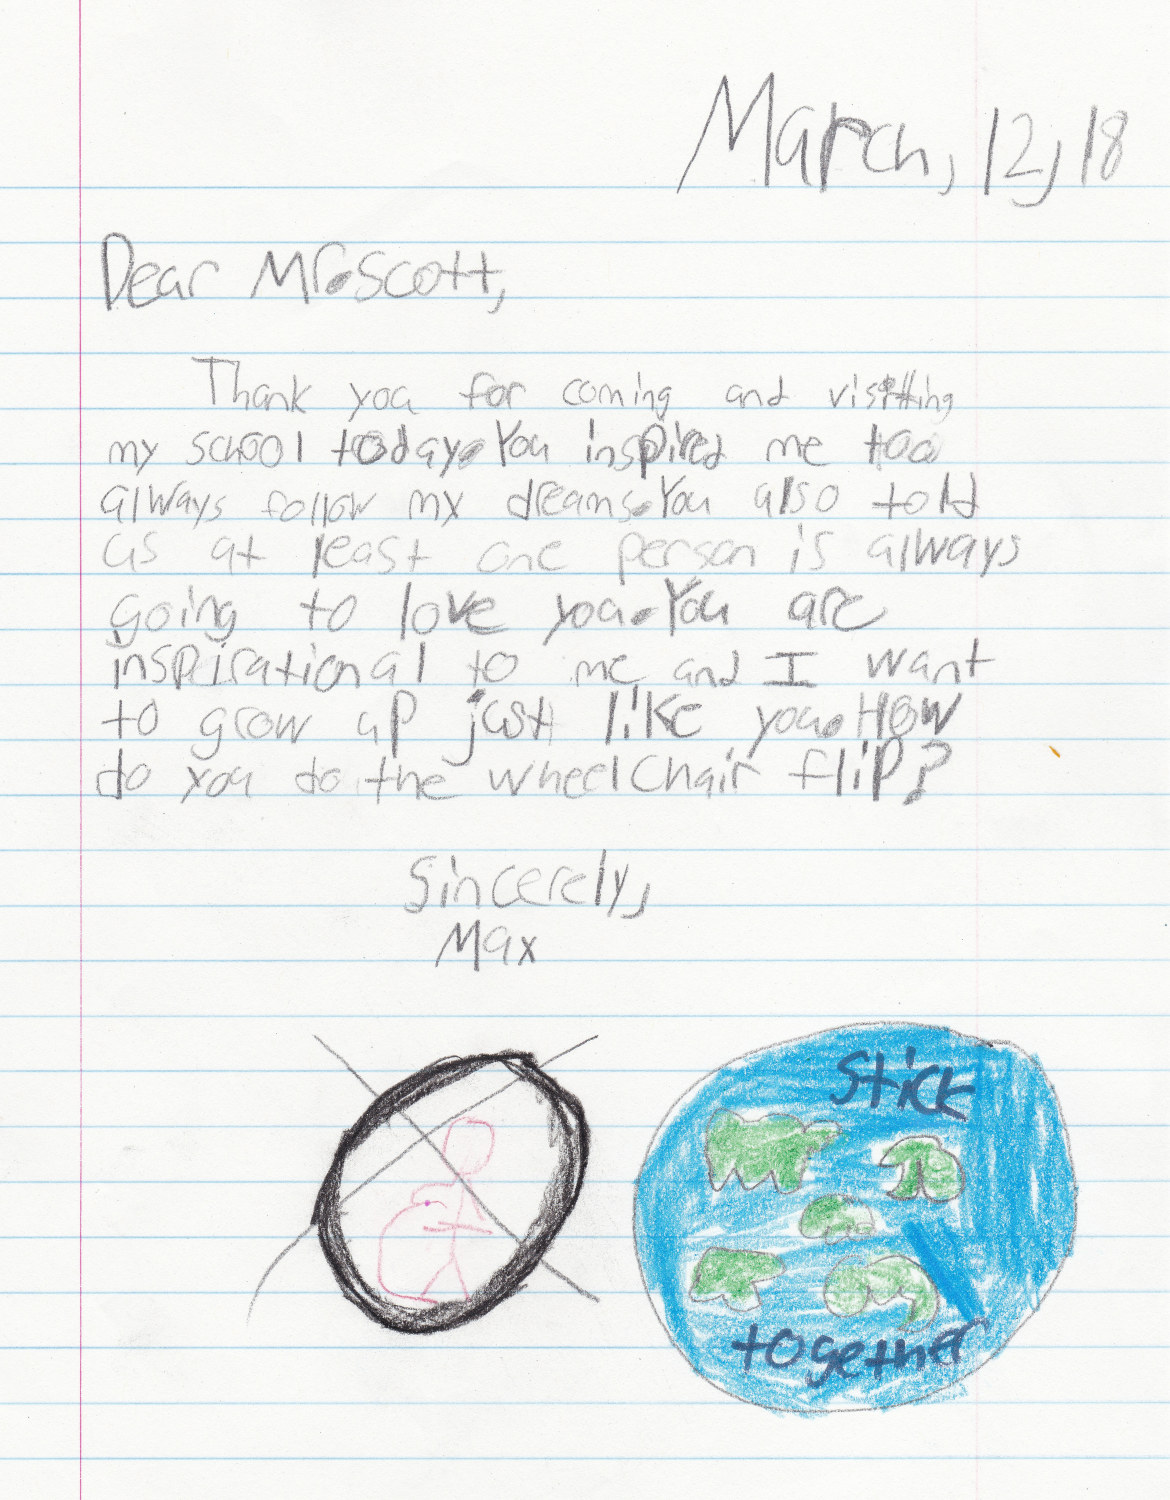 March, 12, 18
Dear Mr. Scott,
Thank you for coming and visitting
my school today. You inspired me too
always follow my dreams. You also told
us at least one person is always
going to love you. You are
inspirational to me and I want
to grow up just like you. How
do you do the wheelchair flip?
Sincerely,
Max
Stick
together